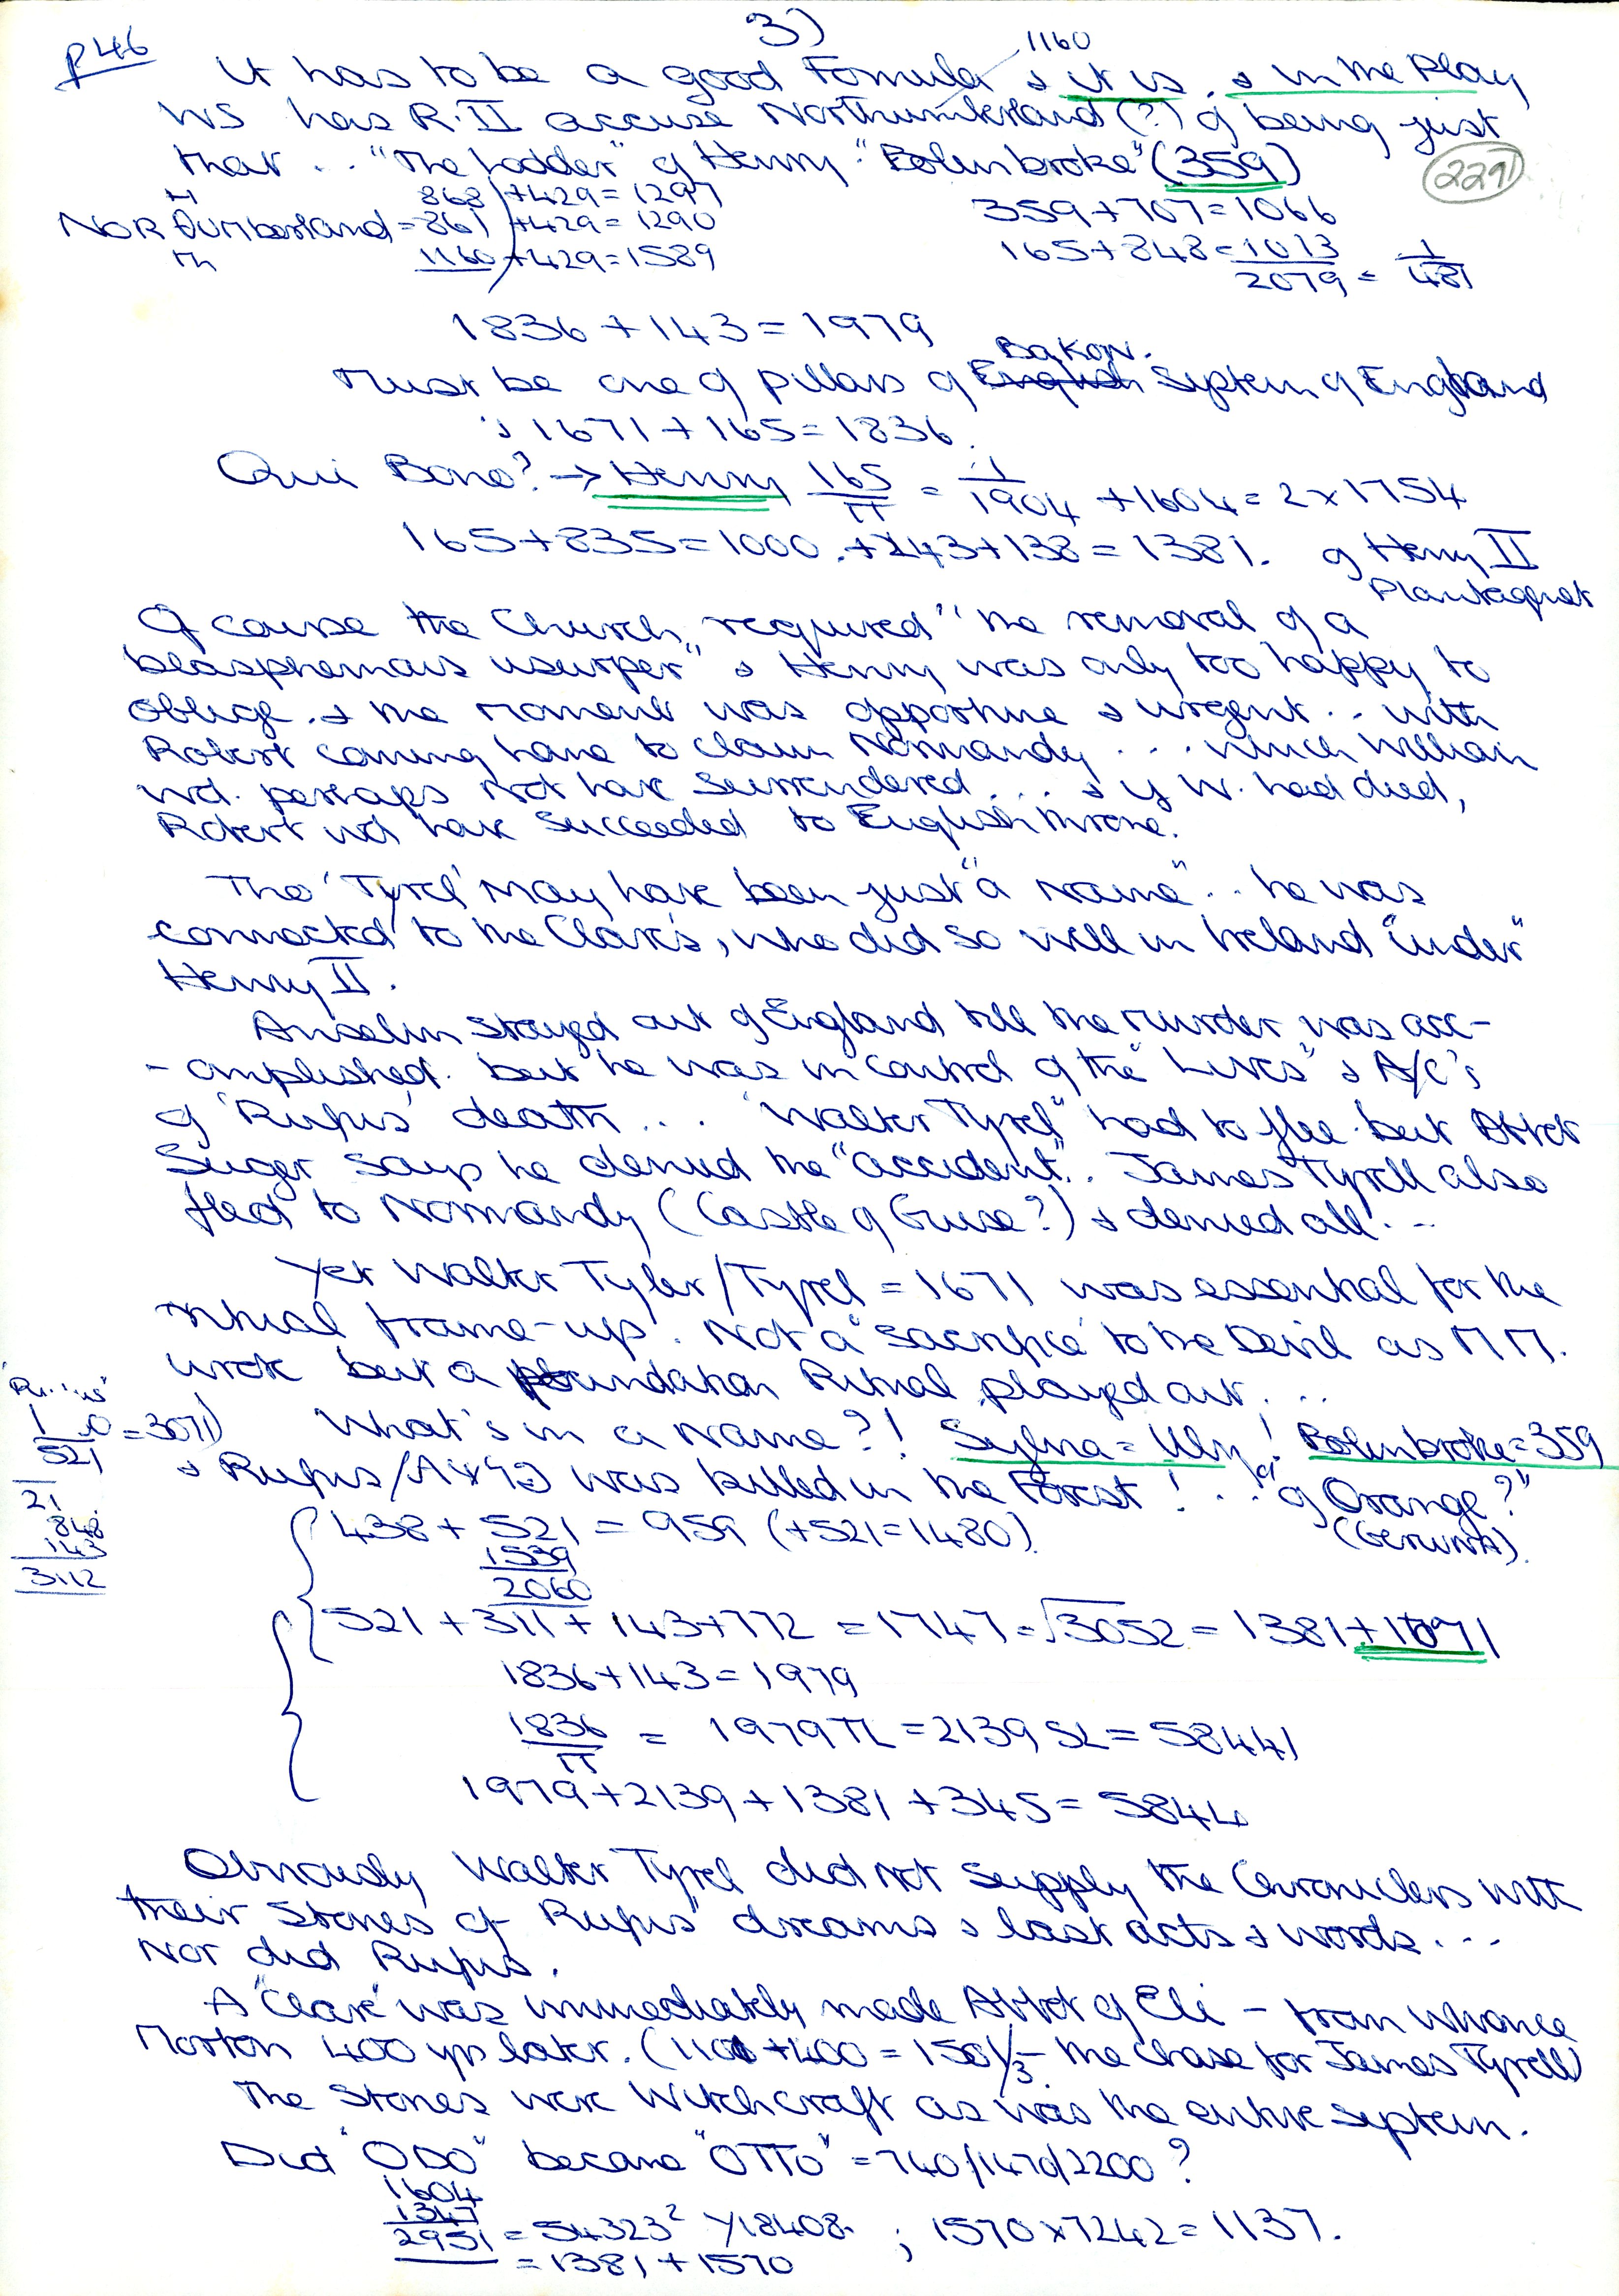 3)
p46
1160
It has to be a good Formula & it is. & in the Play
WS has R.II accuse Northumberland (?) of being just
that .. "The Ladder" of Henry "Bolinbroke" (359)
2291
H 868 +429 = 1297
NOR Θumberland = 861 +429 = 1290
Th 1160 +429 = 1589
359+707=1066
165+848=1013
2079 = 1/481
1836 + 143 = 1979
Must be one of pillars of English Bakon. System of England
& 1671 + 165 = 1836.
Qui Bono? → Henry 165/π = 1/1904 + 1604 = 2 x 1754
165+835=1000 .+243+138=1381. of Henry II
Plantagnet
Of course the Church "required" the removal of a
blasphemous usurper" & Henry was only too happy to
oblige. & the moment was opportune & urgent .. with
Robert coming home to claim Normandy ... which William
wd. perhaps not have surrendered ... & if W. had died,
Robert wd have succeeded to English throne.
Tho 'Tyrel' may have been just "a name" .. he was
connected to the Clare's, who did so well in Ireland "under"
Henry II.
Anselm stayed out of England till the murder was acc-
-omplished. but he was in control of the "Lives" & A/C's
of 'Rufus' death ... "Walter Tyrel" had to flee but Abbot
Suger says he denied the "accident" .. James Tyrell also
fled to Normandy (Castle of Guise?) & denied all ...
Yet Walter Tyler/Tyrel = 1671 was essential for the
ritual frame-up. Not a 'sacrifice' to the Devil as MM.
wrote but a foundation Ritual played out ...
What's in a name?! Sylva = Ulm! Bolinbroke = 359
& Rufus/ was killed in the Forest! .. "of Orange?"
(Geruna).
1/521 = 3071)
21
848
143
3112
438 + 521 = 959 (+521=1480)
1539
2060
521 + 311 + 143 + 772 = 1747 = √3052 = 1381 + 1671
1836+143 = 1979
1836/π = 1979 TL = 2139 SL = 58441
1979+2139+1381+345= 5844
Obviously Walter Tyrel did not supply the Chroniclers with
their stories of Rufus' dreams & last acts & words ...
Nor did Rufus.
A "Clare" was immediately made Abbot of Eli - from whence
Morton 400 yrs later. (1101 +400 = 1501/3 - the chase for James Tyrell)
The stories were Witchcraft as was the entire system.
Did "ODO" become "OTTO" = 740/1470/2200?
1604
1347
2951 = 54323² γ18408. ; 1570 x 7242 = 1137.
= 1381 + 1570